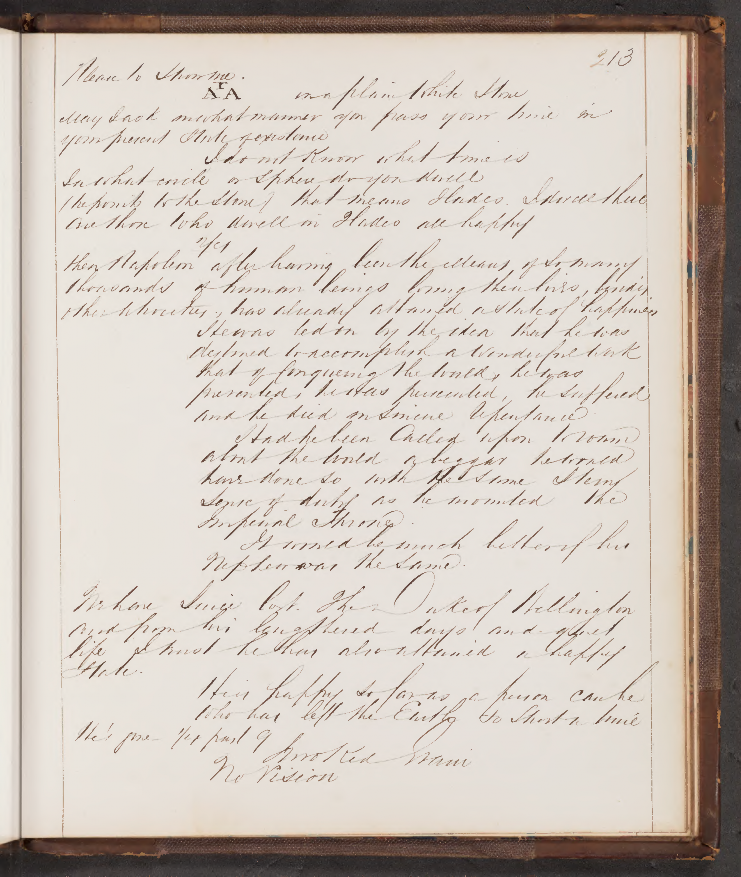 213
Please to Show me.
A A on a plain White Stone
May I ask in what manner you pass your time in
your present State of existence
I do not Know what time is
In what circle or Sphere do you dwell
(he points to the Stone) that means Hades. I dwell there
Are those who dwell in Hades all happy
then Napoleon after having been the Means of So many
thousands of human beings losing their lives,
other atrocities, has already attained a state of happiness
He was led on by the idea that he was
destined to accomplish a Wonderful Work
that of Conquering the World, he was
prevented, he was persecuted, he suffered
and he died in Sincere Repentance
Had he been Called upon to roam
about the World a beggar he would
have done so with the Same Strong
Sense of duty as he mounted the
Imperial Throne.
It would be much better if his
Nephew was the Same.
We have Since lost The Duke of Wellington
and from his lengthened days and quiet
life I trust he has also attained a happy
State.
He is happy so far as a person can be
Who has left the Earth So Short a time
He's gone ¼ past 9
Invoked
No Vision